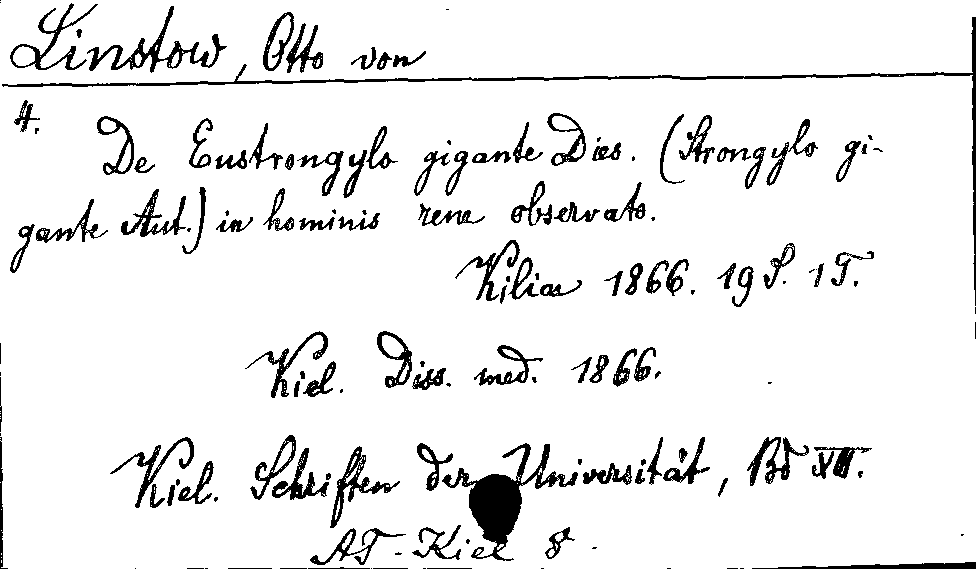 Linstow, Otto von
4.
De Eustrongylo gigante Dies. (Strongylo gi-
gante Aut.) in hominis rene observato.
Kiliae 1866. 19 S. 1 T.
Kiel. Diss. med. 1866.
Kiel. Schriften der Universität, Bd XIII.
AT-Kiel 8